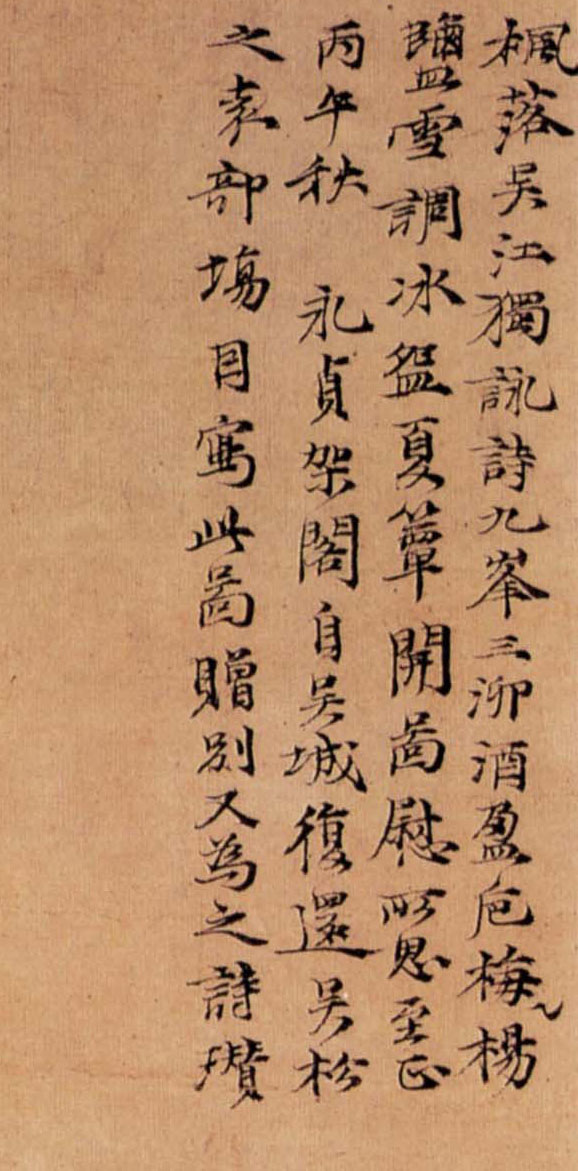 楓落吳江獨詠詩九峯三泖酒盈卮梅楊
鹽雪調冰盌夏簟開啚慰所思至正
丙午秋 永貞架閣自吳城復還吳松
之袁部塲因寫此啚贈別又為之詩瓚